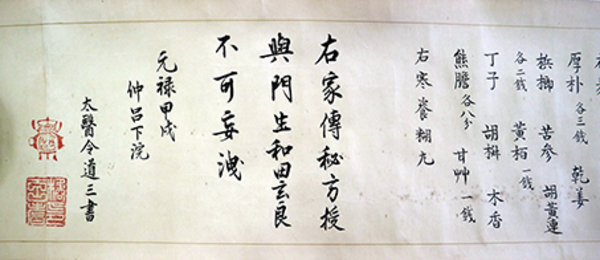 厚朴 各三錢 乾姜
梹榔 苦參 胡黃連
各二錢 黃栢 一錢
丁子 胡椒 木香
熊膽 各八分 甘艸 一錢
右寒養糊丸
右家傳秘方授
與門生和田玄良
不可妄洩
元禄甲戌
仲呂下浣
太醫令道三書